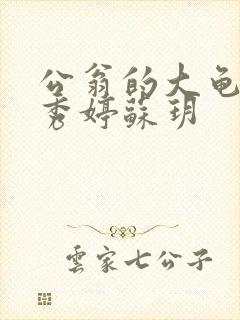 公翁的大龟
秀婷蘇玥
雲家七公子